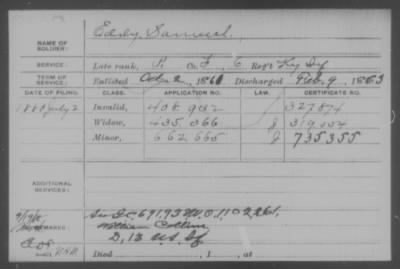 Eddy Samuel,
NAME OF SOLDIER:
SERVICE: Late rank, P. Co. F, 6 Reg't Ky Inf
TERM OF SERVICE: Enlisted Oct 2, 1861 Discharged Feb. 9, 1863
DATE OF FILING. CLASS. APPLICATION NO. LAW. CERTIFICATE NO.
1880 July 2 Invalid, 408.902 327874
Widow, 435.066 J 319.004
Minor, 662 665 J 735355
ADDITIONAL SERVICES:
REMARKS: 691.93 W.O. 1102261.
William Collins
D, 13 U.S. Inf
Died , 1 , at